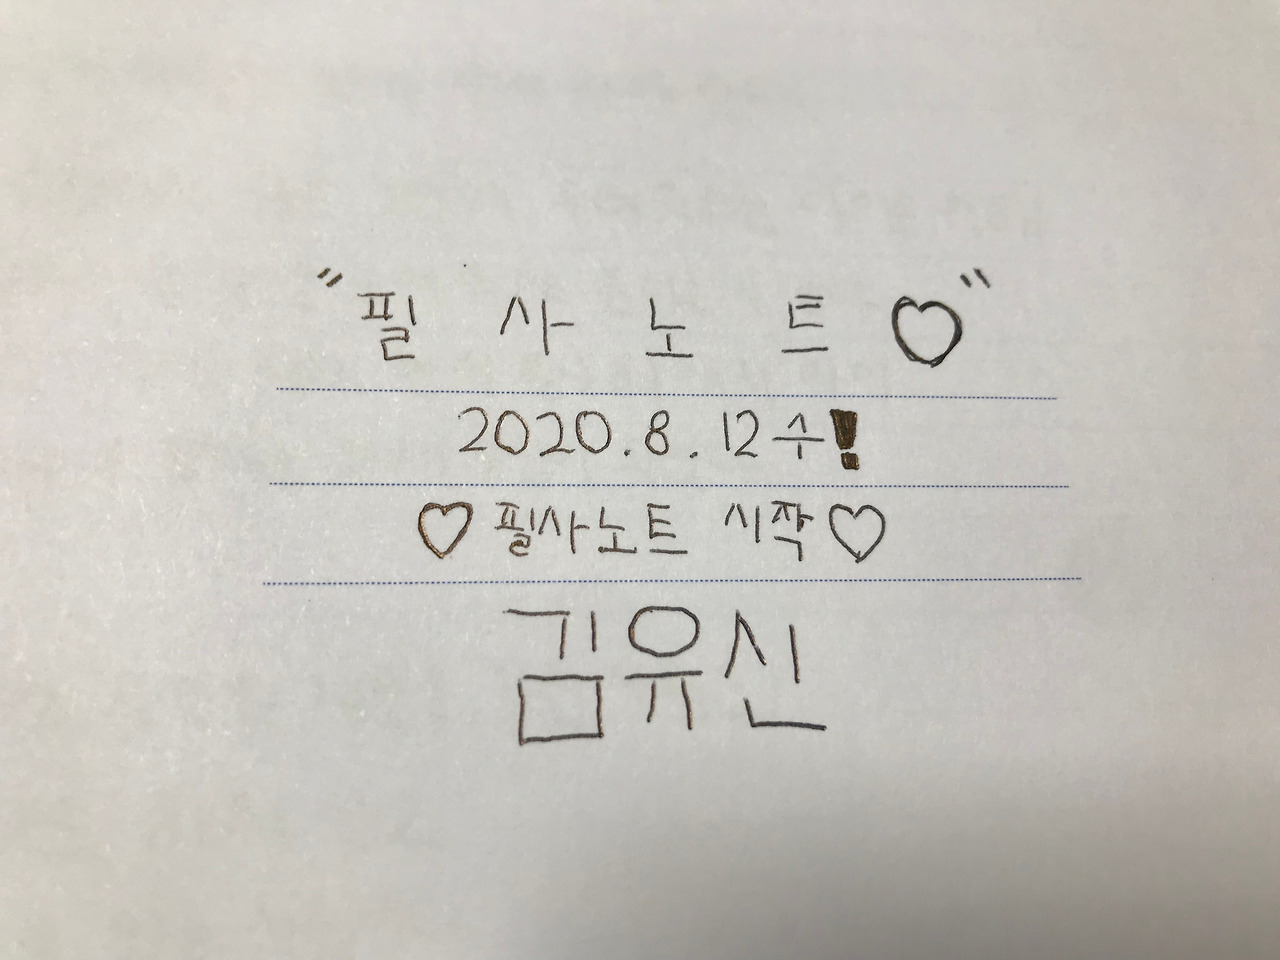 "필 사 노 트♡"
2020.8.12수!
♡필사노트 시작♡
김유신